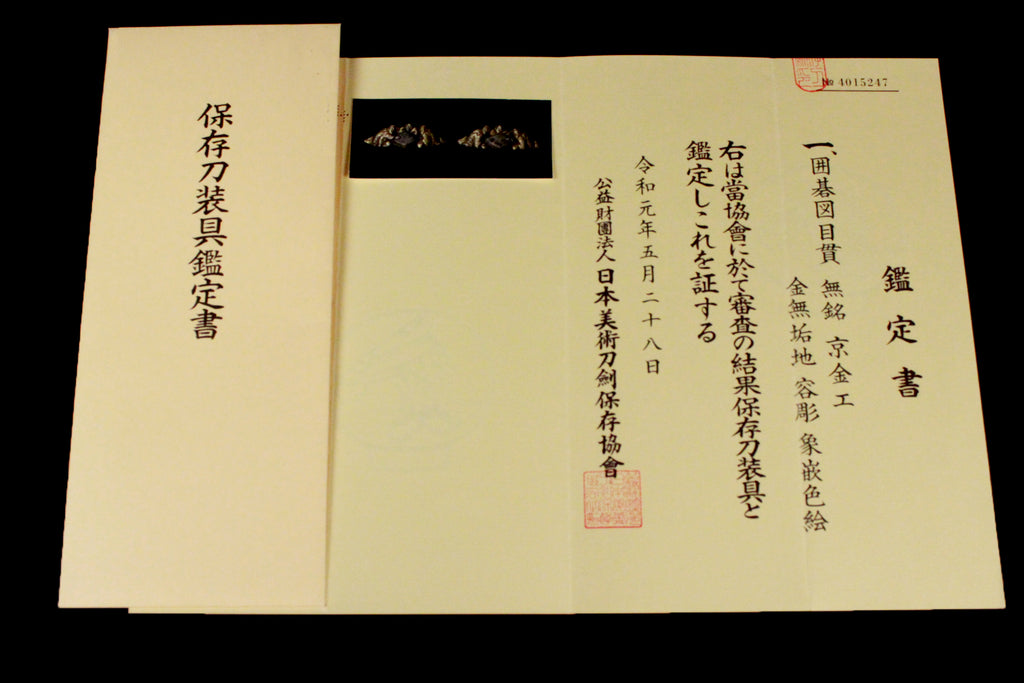 保存刀装具鑑定書
№ 4015247
鑑定書
一、囲碁図目貫 無銘 京金工
金無垢地 容彫 象嵌色絵
右は當協會に於て審査の結果保存刀装具と
鑑定しこれを証する
令和元年五月二十八日
公益財團法人日本美術刀劍保存協會